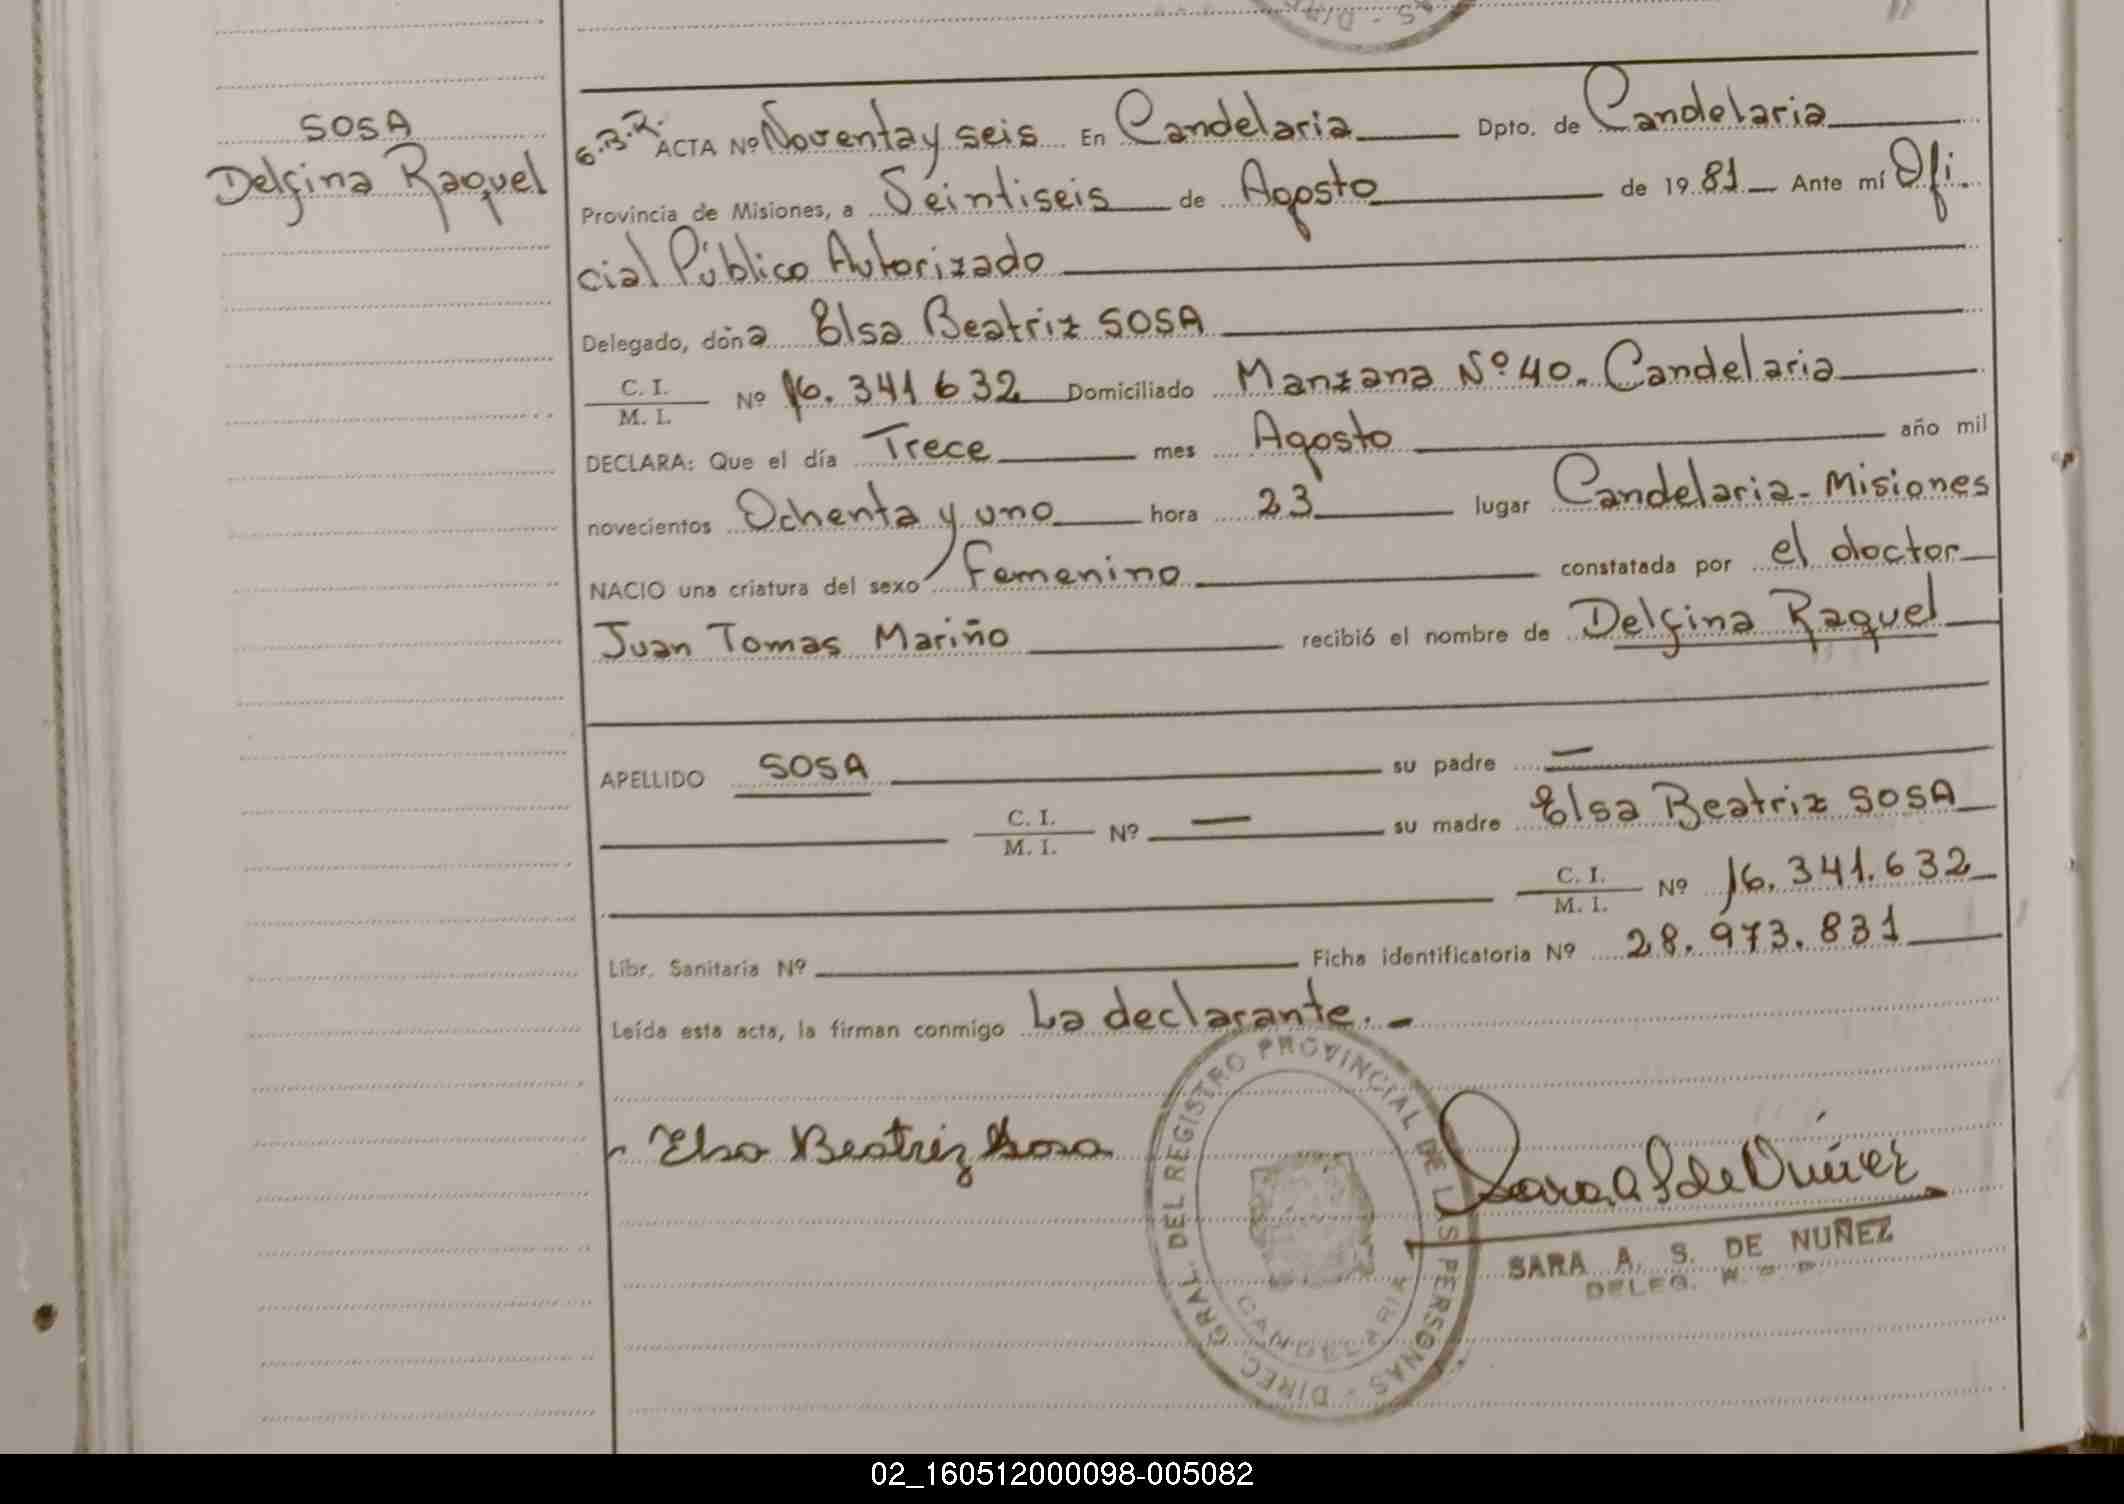 SOSA
Delfina Raquel
6.B.R. ACTA Nº Noventa y seis En Candelaria Dpto. de Candelaria
Provincia de Misiones, a Veintiseis de Agosto de 1981 Ante mí Ofi
cial Público Autorizado
Delegado, doña Elsa Beatriz SOSA
C. I.
M. I.
Nº 16.341 632 Domiciliado Manzana Nº 40. Candelaria
DECLARA: Que el día Trece mes Agosto año mil
novecientos Ochenta y uno hora 23 lugar Candelaria - Misiones
NACIO una criatura del sexo femenino constatada por el doctor
Juan Tomas Mariño recibió el nombre de Delfina Raquel
APELLIDO SOSA su padre —
C. I.
M. I.
Nº — su madre Elsa Beatriz SOSA
C. I.
M. I.
Nº 16.341.632
Libr. Sanitaria Nº Ficha identificatoria Nº 28.973.831
Leída esta acta, la firman conmigo La declarante.-
Elsa Beatriz Sosa
DIREC. GRAL. DEL REGISTRO PROVINCIAL DE LAS PERSONAS -
CANDELARIA
Sara A S de Núñez
SARA A. S. DE NUÑEZ
DELEG. R. P. P.
02_160512000098-005082